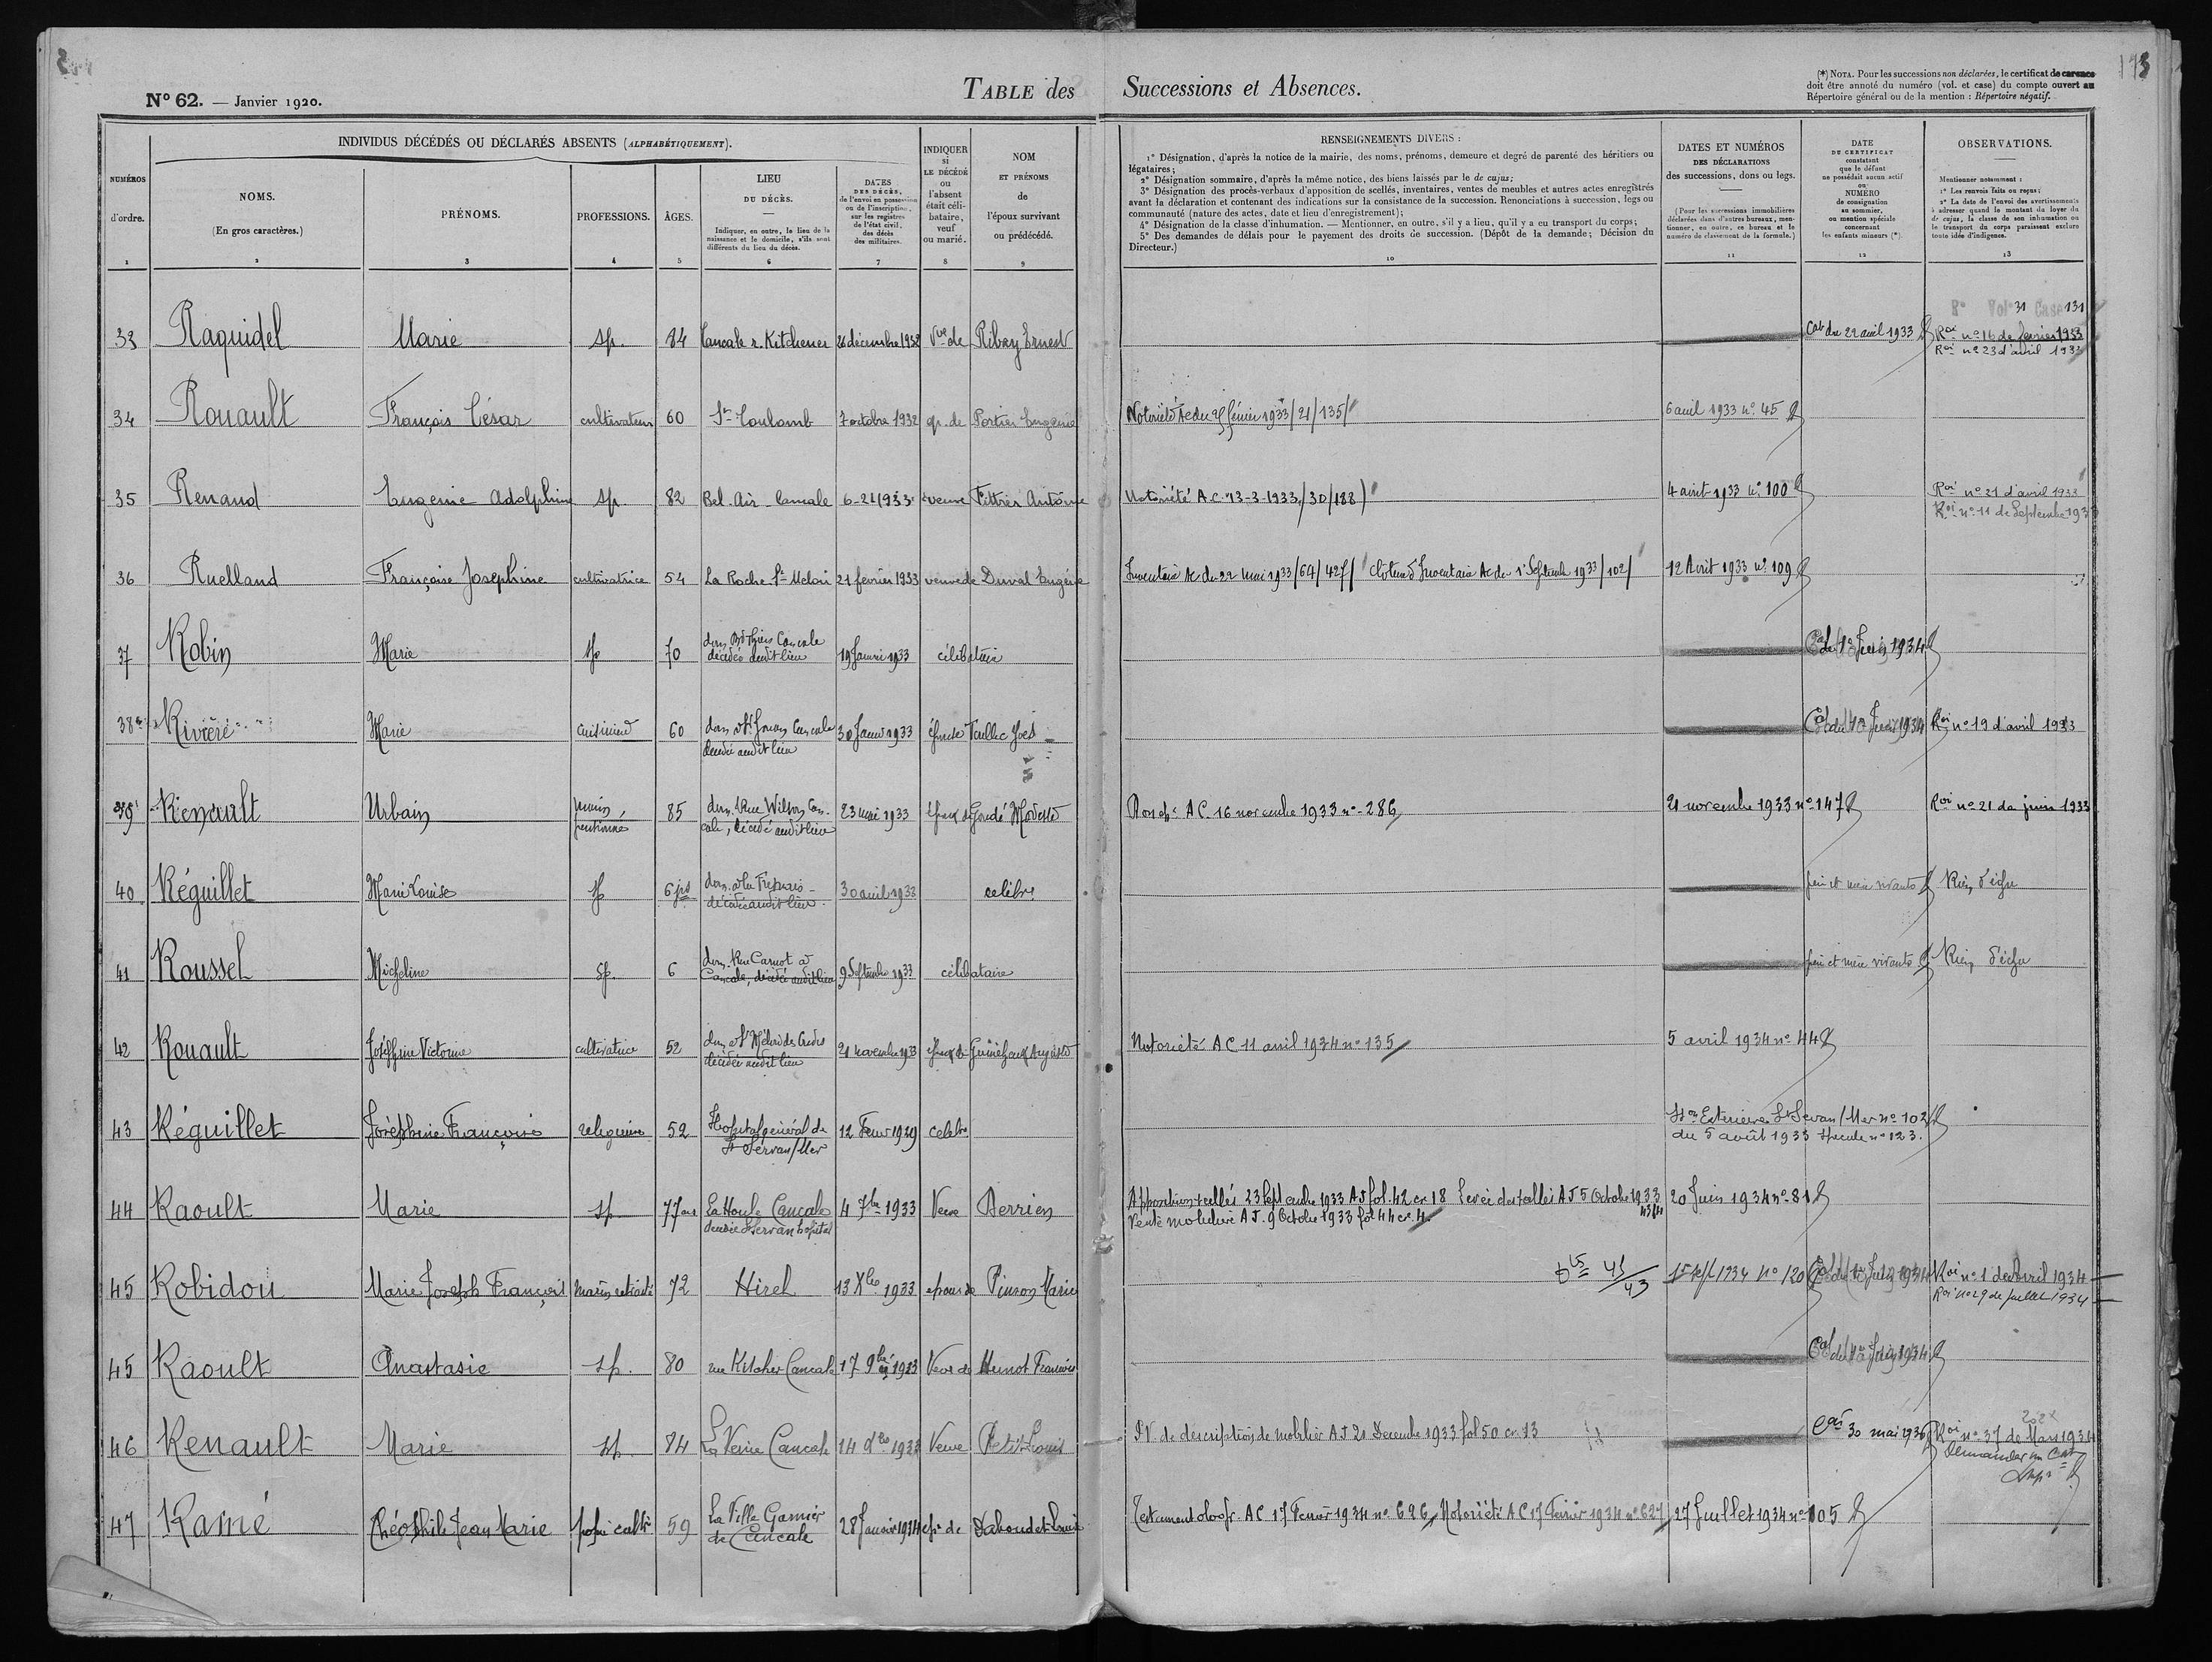 N° 62. — Janvier 1920.
TABLE des Successions et Absences.
(*) NOTA. Pour les successions non déclarées, le certificat de carence
doit être annoté du numéro (vol. et case) du compte ouvert au
Répertoire général ou de la mention : Répertoire négatif.
113
NUMÉROS
d'ordre.
1
INDIVIDUS DÉCÉDÉS OU DÉCLARÉS ABSENTS (ALPHABÉTIQUEMENT).
NOMS.
(En gros caractères.)
2
PRÉNOMS.
3
PROFESSIONS.
4
ÂGES.
5
LIEU
DU DÉCÈS.
Indiquer, en outre, le lieu de la
naissance et le domicile, s'ils sont
différents du lieu du décès.
6
DATES
DES DÉCÈS,
de l'envoi en possession
ou de l'inscription,
sur les registres
de l'état civil,
des décès
des militaires.
7
INDIQUER
si
LE DÉCÉDÉ
ou
l'absent
était céli-
bataire,
veuf
ou marié.
8
NOM
ET PRÉNOMS
de
l'époux survivant
ou prédécédé.
9
RENSEIGNEMENTS DIVERS :
1° Désignation, d'après la notice de la mairie, des noms, prénoms, demeure et degré de parenté des héritiers ou
légataires;
2° Désignation sommaire, d'après la même notice, des biens laissés par le de cujus;
3° Désignation des procès-verbaux d'apposition de scellés, inventaires, ventes de meubles et autres actes enregistrés
avant la déclaration et contenant des indications sur la consistance de la succession. Renonciations à succession, legs ou
communauté (nature des actes, date et lieu d'enregistrement);
4° Désignation de la classe d'inhumation. — Mentionner, en outre, s'il y a lieu, qu'il y a eu transport du corps;
5° Des demandes de délais pour le payement des droits de succession. (Dépôt de la demande; Décision du
Directeur.)
10
DATES ET NUMÉROS
DES DÉCLARATIONS
des successions, dons ou legs.
(Pour les successions immobilières
déclarées dans d'autres bureaux, men-
tionner, en outre, ce bureau et le
numéro de classement de la formule.)
11
DATE
DU CERTIFICAT
constatant
que le défunt
ne possédait aucun actif
ou
NUMÉRO
de consignation
au sommier,
ou mention spéciale
concernant
les enfants mineurs (*).
12
OBSERVATIONS.
Mentionner notamment :
1° Les renvois faits ou reçus;
2° La date de l'envoi des avertissements
à adresser quand le montant du loyer du
de cujus, la classe de son inhumation ou
le transport du corps paraissent exclure
toute idée d'indigence.
13
R° Vol 31 Case 131
33 Raquidel Marie sp. 84 Cancale r. Kitchener 26 décembre 1932 Vve de Ribay Ernest Cat du 22 avril 1933 Roi n° 16 de février 1933
Roi n° 23 d'avril 1933
34 Rouault François César cultivateur 60 St Coulomb 7 octobre 1932 ép. de Portier Eugénie 6 avril 1933 n° 45
35 Renaud Eugenie Adolphine sp. 82 Bel-Air Cancale 6-2-1933 veuve Antoine Notoriété A.C. 13-3-1933/30/188) 4 août 1933 n° 100 Roi n° 21 d'avril 1933
Roi n° 11 de Septembre 1933
36 Ruelland Françoise Josephine cultivatrice 54 La Roche St Meloir 21 février 1933 veuve de Duval Eugène Inventaire Ac du 22 mai 1933/64/427/ Clôture d'Inventaire Ac du 1er Septembre 1933/102/ 12 Août 1933 n° 109
37 Robin Marie sp 70 dom Bd Thiers Cancale
décédée audit lieu 19 Janvier 1933 célibataire 1er Juin 1934
38 Rivière Marie 60 Cancale
décédée audit lieu 30 Janv 1933 épouse Yves 1934 Roi n° 19 d'avril 1933
39 Renault Urbain marin
pensionné 85 dom. Rue Wilson Can-
cale, décédé audit lieu 23 mai 1933 époux de Modeste A C. 16 novembre 1933 n° 286 21 novembre 1933 n° 147 Roi n° 21 de juin 1933
40 Réguillet Marie Louise sp 6 jrs
décédée audit lieu 30 avril 1933 celibre père et mère vivants Rien d'échu
41 Roussel Micheline sp. 6 dom. Rue Carnot à
Cancale, décédée audit lieu 9 Septembre 1933 célibataire père et mère vivants Rien d'échu
42 Rouault Joséphine Victorine cultivatrice 52 dom à St Méloir des Ondes
décédée audit lieu 21 novembre 1933 Auguste Notoriété A C 11 avril 1934 n° 135 5 avril 1934 n° 44
43 Réguillet Joséphine Françoise religieuse 52 Hopital général de
St Servan/Mer 12 Fevr 1929 celebre St Servan/Mer n° 102
du 5 août 1933 n° 123.
44 Raoult Marie sp 77 ans La Houle Cancale
décédée St Servan hopital 4 7bre 1933 Veuve Derrien Apposition scellés 23 Septembre 1933 A J fol. 42 cr 18 Levée des scellés A J 5 Octobre 1933 43/11
Vente mobilière A J. 9 Octobre 1933 fol 44 cr. 4. 20 Juin 1934 n° 81
45 Robidou Marie Joseph François marin retraité 72 Hirel 13 Xbre 1933 époux de Pinson Marie 43 1934 N° 120 Roi n° 1 de Avril 1934
Roi n° 29 de juillet 1934
45 Raoult Anastasie sp. 80 rue Kitcher Cancale 17 9bre 1933 Veuve de Hunot Francois Juin 1934
46 Renault Marie sp. 84 La Verrie Cancale 14 1933 Veuve Petit Louis P V. de description de mobilier A J 21 Decembre 1933 fol 50 cr. 13 Cat 30 mai 1936 Roi n° 37 de Mars 1934
Demander un Cat
47 Ramé Théophile Jean Marie propre cultr 59 La Ville Garnier
de Cancale 28 Janvier 1934 ép. de Louise Testament olog. AC 17 Fevrier 1934 n° 626, Notoriété A C 17 Fevrier 1934 n° 627 27 Juillet 1934 n° 105